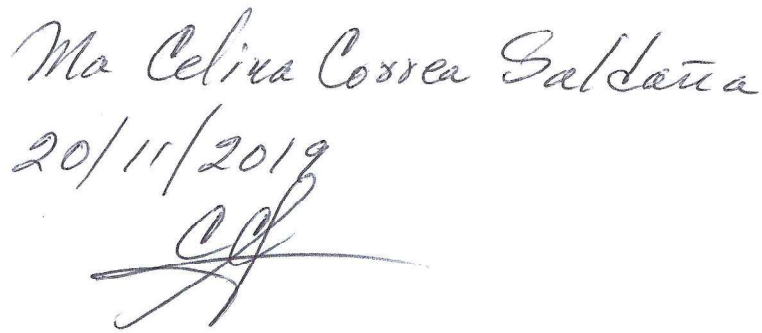 Ma Celina Correa Saldaña
20/11/2019